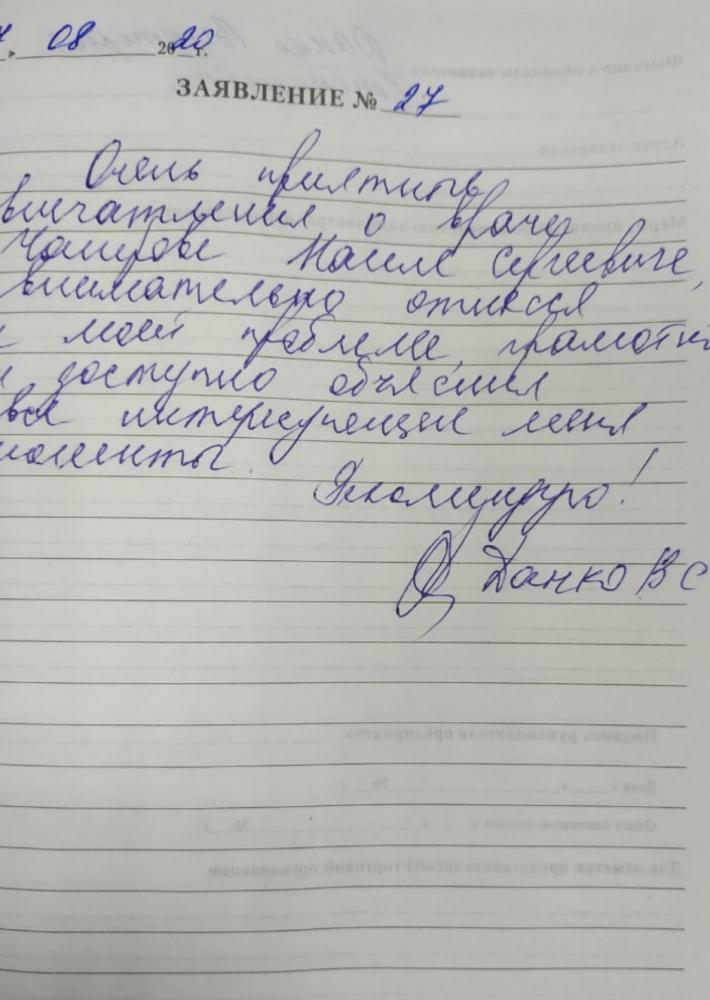 » 08 2020 г.
ЗАЯВЛЕНИЕ № 27
Очень приятные
впечатления о враче
Наиле Сергеевиче,
внимательно отнесся
к моей проблеме, грамотно
и доступно объяснил
все интересующие меня
моменты.
Рекомендую!
Данко В С
Подпись руководителя предприятия
Дата « » 20 г.
Для отметок представителя(ей) торговой организации